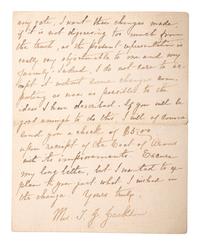 my gate, I want these changes made,
if it is not digressing too much from
the truth, as the present representation is
really very objectionable to me and my
family. Indeed, I do not care to accept
it without some changes
as near as possible to the
idea I have described. If you will be
good enough to do this, I will of course
send you a check of $5.00
upon receipt of the Coat of Arms
with the improvements. Excuse
my long letter, but I wanted to ex-
plain to you just what I wished in
the change. Yours truly,
Mrs. J. G.